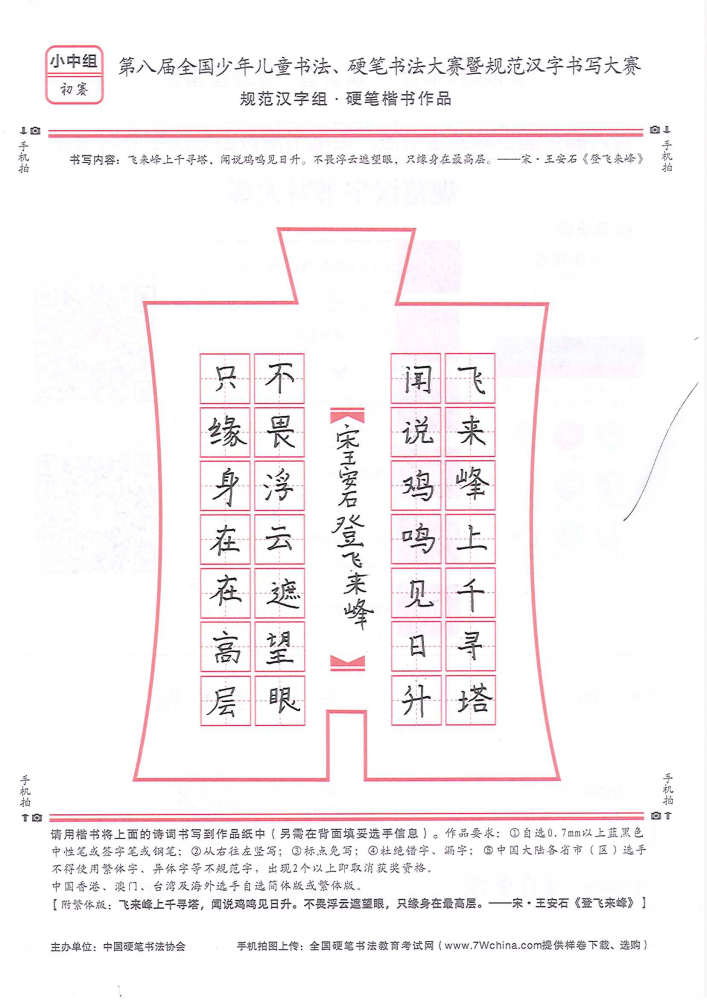 小中组
初赛
第八届全国少年儿童书法、硬笔书法大赛暨规范汉字书写大赛
规范汉字组·硬笔楷书作品
手机拍
手机拍
书写内容：飞来峰上千寻塔，闻说鸡鸣见日升。不畏浮云遮望眼，只缘身在最高层。——宋·王安石《登飞来峰》
飞来峰上千寻塔
闻说鸡鸣见日升
宋王安石登飞来峰
不畏浮云遮望眼
只缘身在在高层
手机拍
手机拍
请用楷书将上面的诗词书写到作品纸中（另需在背面填妥选手信息）。作品要求：①自选0.7mm以上蓝黑色
中性笔或签字笔或钢笔；②从右往左竖写；③标点免写；④杜绝错字、漏字；⑤中国大陆各省市（区）选手
不得使用繁体字、异体字等不规范字，出现2个以上即取消获奖资格。
中国香港、澳门、台湾及海外选手自选简体版或繁体版。
【附繁体版：飞来峰上千寻塔，闻说鸡鸣见日升。不畏浮云遮望眼，只缘身在最高层。——宋·王安石《登飞来峰》】
主办单位：中国硬笔书法协会
手机拍图上传：全国硬笔书法教育考试网（www.7Wchina.com提供样卷下载、选购）